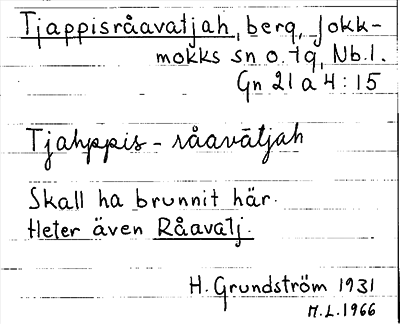 Tjappisråavatjah, berg, Jokk-
mokks sn o. tg, Nb.l.
Gn 21 a 4:15
Tjahppis-råavātjah
Skall ha brunnit här.
Heter även Råavatj.
H. Grundström 1931
M.L.1966